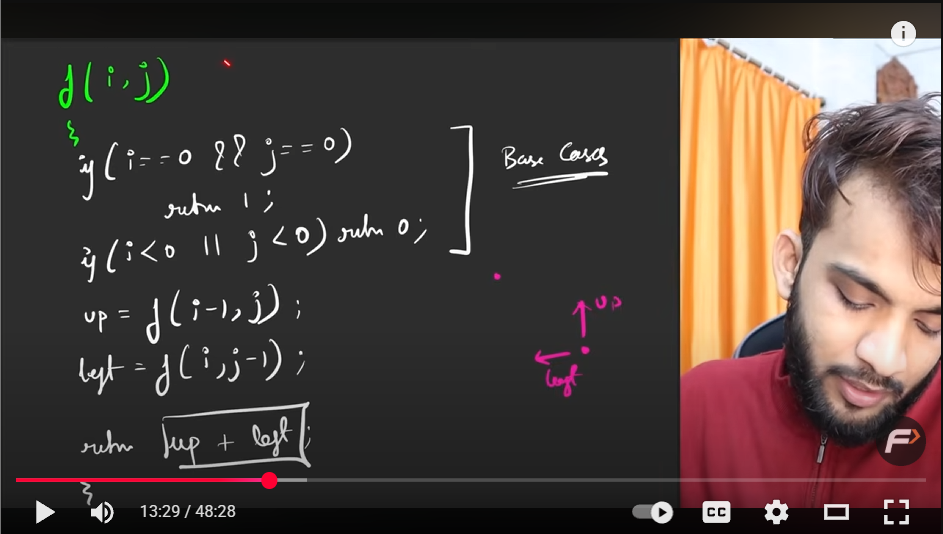 f(i,j)
{
if(i==0 && j==0)
return 1;
if(i<0 || j<0) return 0;
Base Cases
up = f(i-1,j);
left = f(i,j-1);
up
left
return up + left;
}
13:29 / 48:28
CC